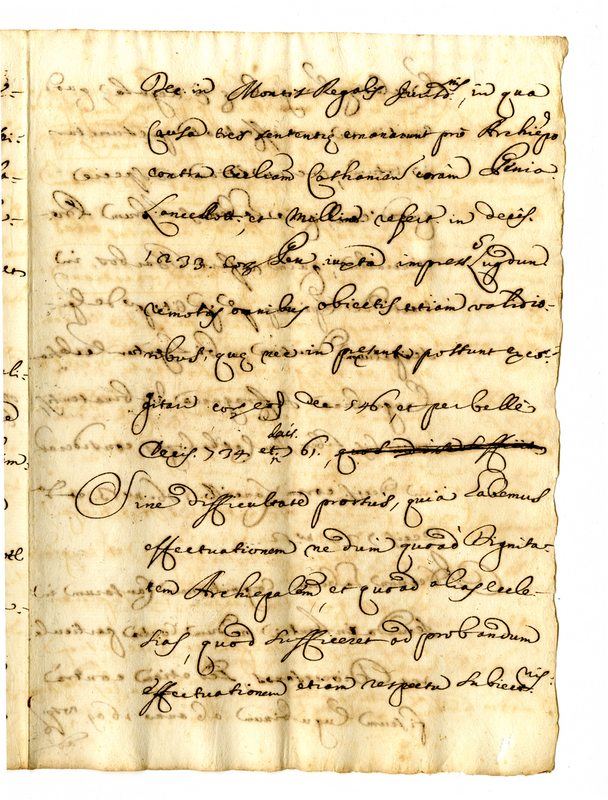 Dec. in Montis Regalis Iurisdnis, in qua
Causa tres sententię emanarunt pro Archiepo
contra Cathanien coram
Lancellott, et Mellino refert in decis.
1233. cor. iuxta impress. Lugdun
remotis omnibus obiectis etiam validio-
ribus, quę nec in presenti possunt exco-
gitari cor. eod dec 546, et perbellè
Decis. 734 et decis. 61.
Sine difficultate prorsus, quia habemus
effectuationem ne dum quoad Dignita-
tem Archiepalem, et quoad alias Eccle-
sias, quod sufficeret ad probandum
effectuationem etiam respectu